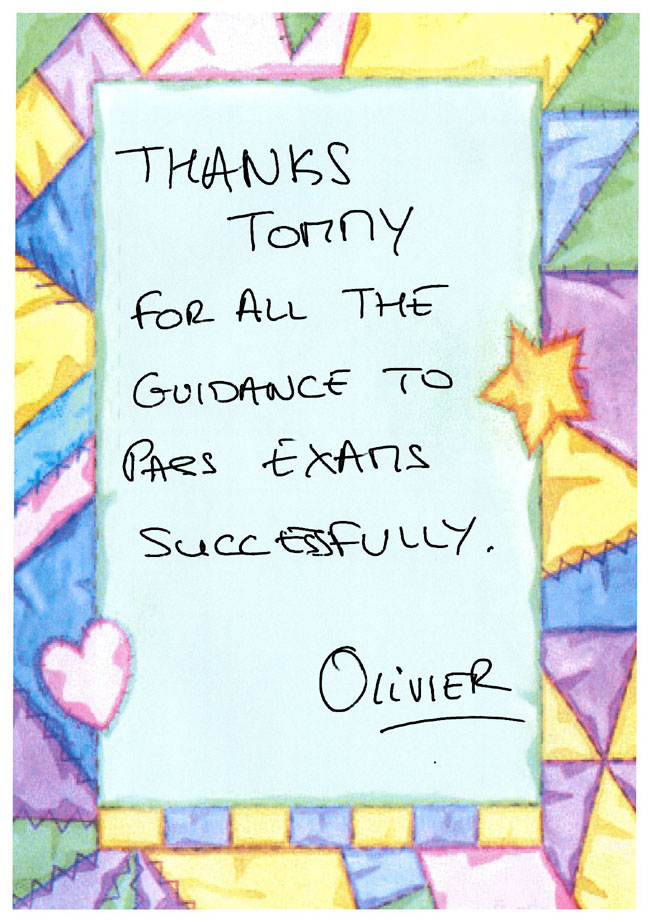 THANKS
TOMMY
FOR ALL THE
GUIDANCE TO
PASS EXAMS
SUCCESSFULLY.
OLIVIER